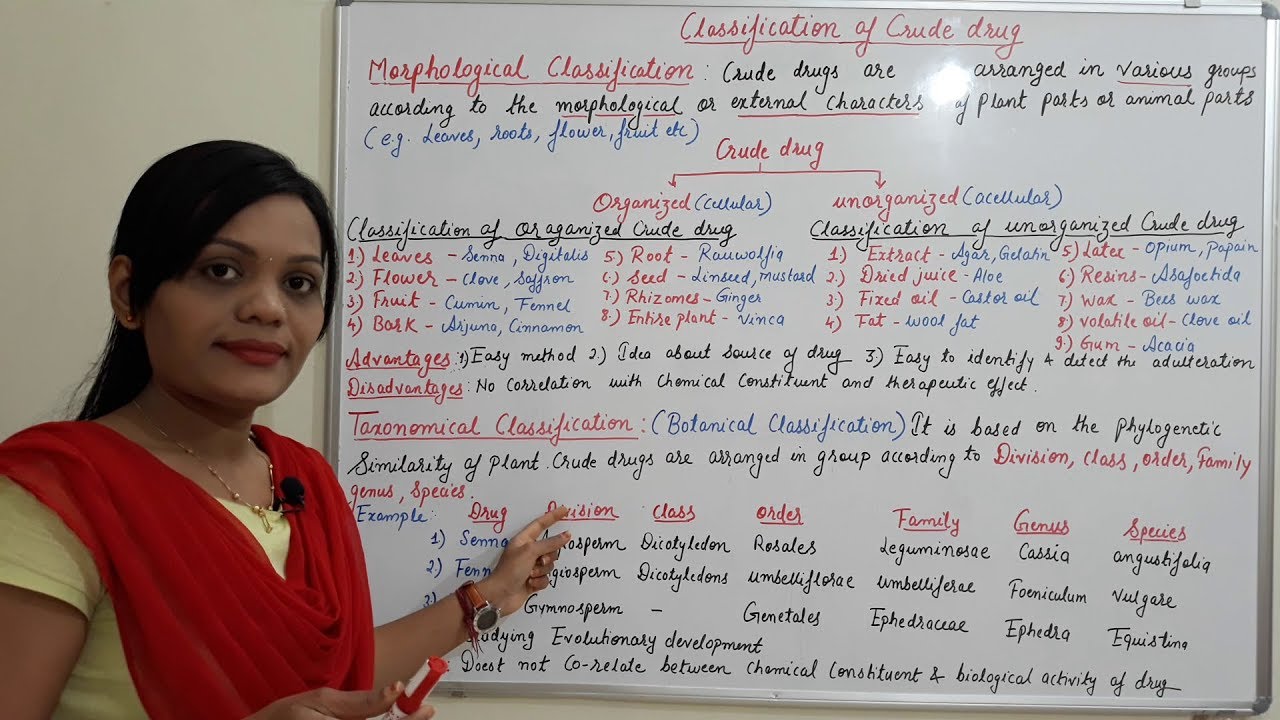 Classification of Crude drug
Morphological Classification : Crude drugs are arranged in various groups
according to the morphological or external characters of plant parts or animal parts
(e.g. Leaves, roots, flower, fruit etc)
Crude drug
Organized (Cellular) unorganized (acellular)
Classification of Oraganized Crude drug
1.) Leaves - Senna, Digitalis 5.) Root - Rauwolfia
2) Flower - Clove, Saffron 6.) Seed - Linseed, Mustard
3) Fruit - Cumin, Fennel 7.) Rhizomes - Ginger
4) Bark - Arjuna, Cinnamon 8.) Entire plant - Vinca
Classification of unorganized Crude drug
1) Extract - Agar, Gelatin 5.) Latex - Opium, Papain
2.) Dried juice - Aloe 6.) Resins - Asafoetida
3) Fixed oil - Castor oil 7) Wax - Bees wax
4) Fat - wool fat 8) volatile oil - Clove oil
9.) Gum - Acacia
Advantages : 1) Easy method 2.) Idea about source of drug 3.) Easy to identify & detect the adulteration
Disadvantages : No Correlation with Chemical Constituent and therapeutic effect.
Taxonomical Classification : (Botanical Classification) It is based on the phylogenetic
Similarity of plant. Crude drugs are arranged in group according to Division, class, order, Family
genus, Species.
Example : Drug Division class order Family Genus Species
1) Senna Dicotyledon Rosales Leguminosae Cassia angustifolia
2.) Dicotyledons umbelliflorae umbelliferae Foeniculum vulgare
Gymnosperm - Genetales Ephedraceae Ephedra Equistina
Evolutionary development
: Doest not Co-relate between Chemical Constituent & biological activity of drug